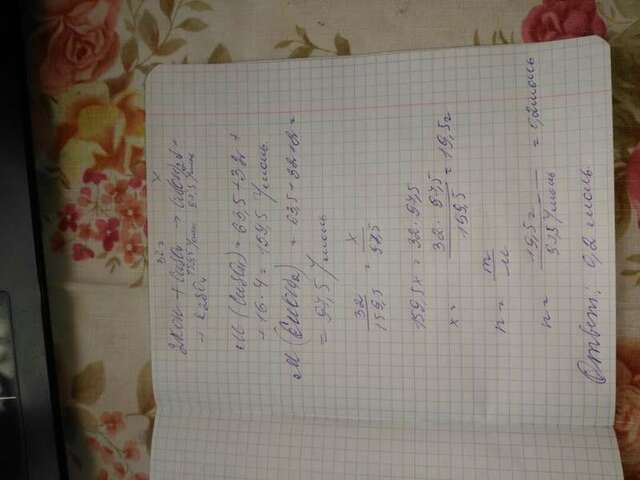 32г x
2KOH + CuSO₄ → Cu(OH)₂↓ +
159,5 г/моль 97,5 г/моль
→ K₂SO₄
M(CuSO₄) = 63,5 + 32 +
+ 16·4 = 159,5 г/моль
M(Cu(OH)₂) = 63,5 + 32 + 2 =
= 97,5 г/моль
32/159,5 = x/97,5
159,5x = 32·97,5
x = 32·97,5/159,5 = 19,5г
n = m/M
n = 19,5г/97,5 г/моль = 0,2 моль
Ответ: 0,2 моль